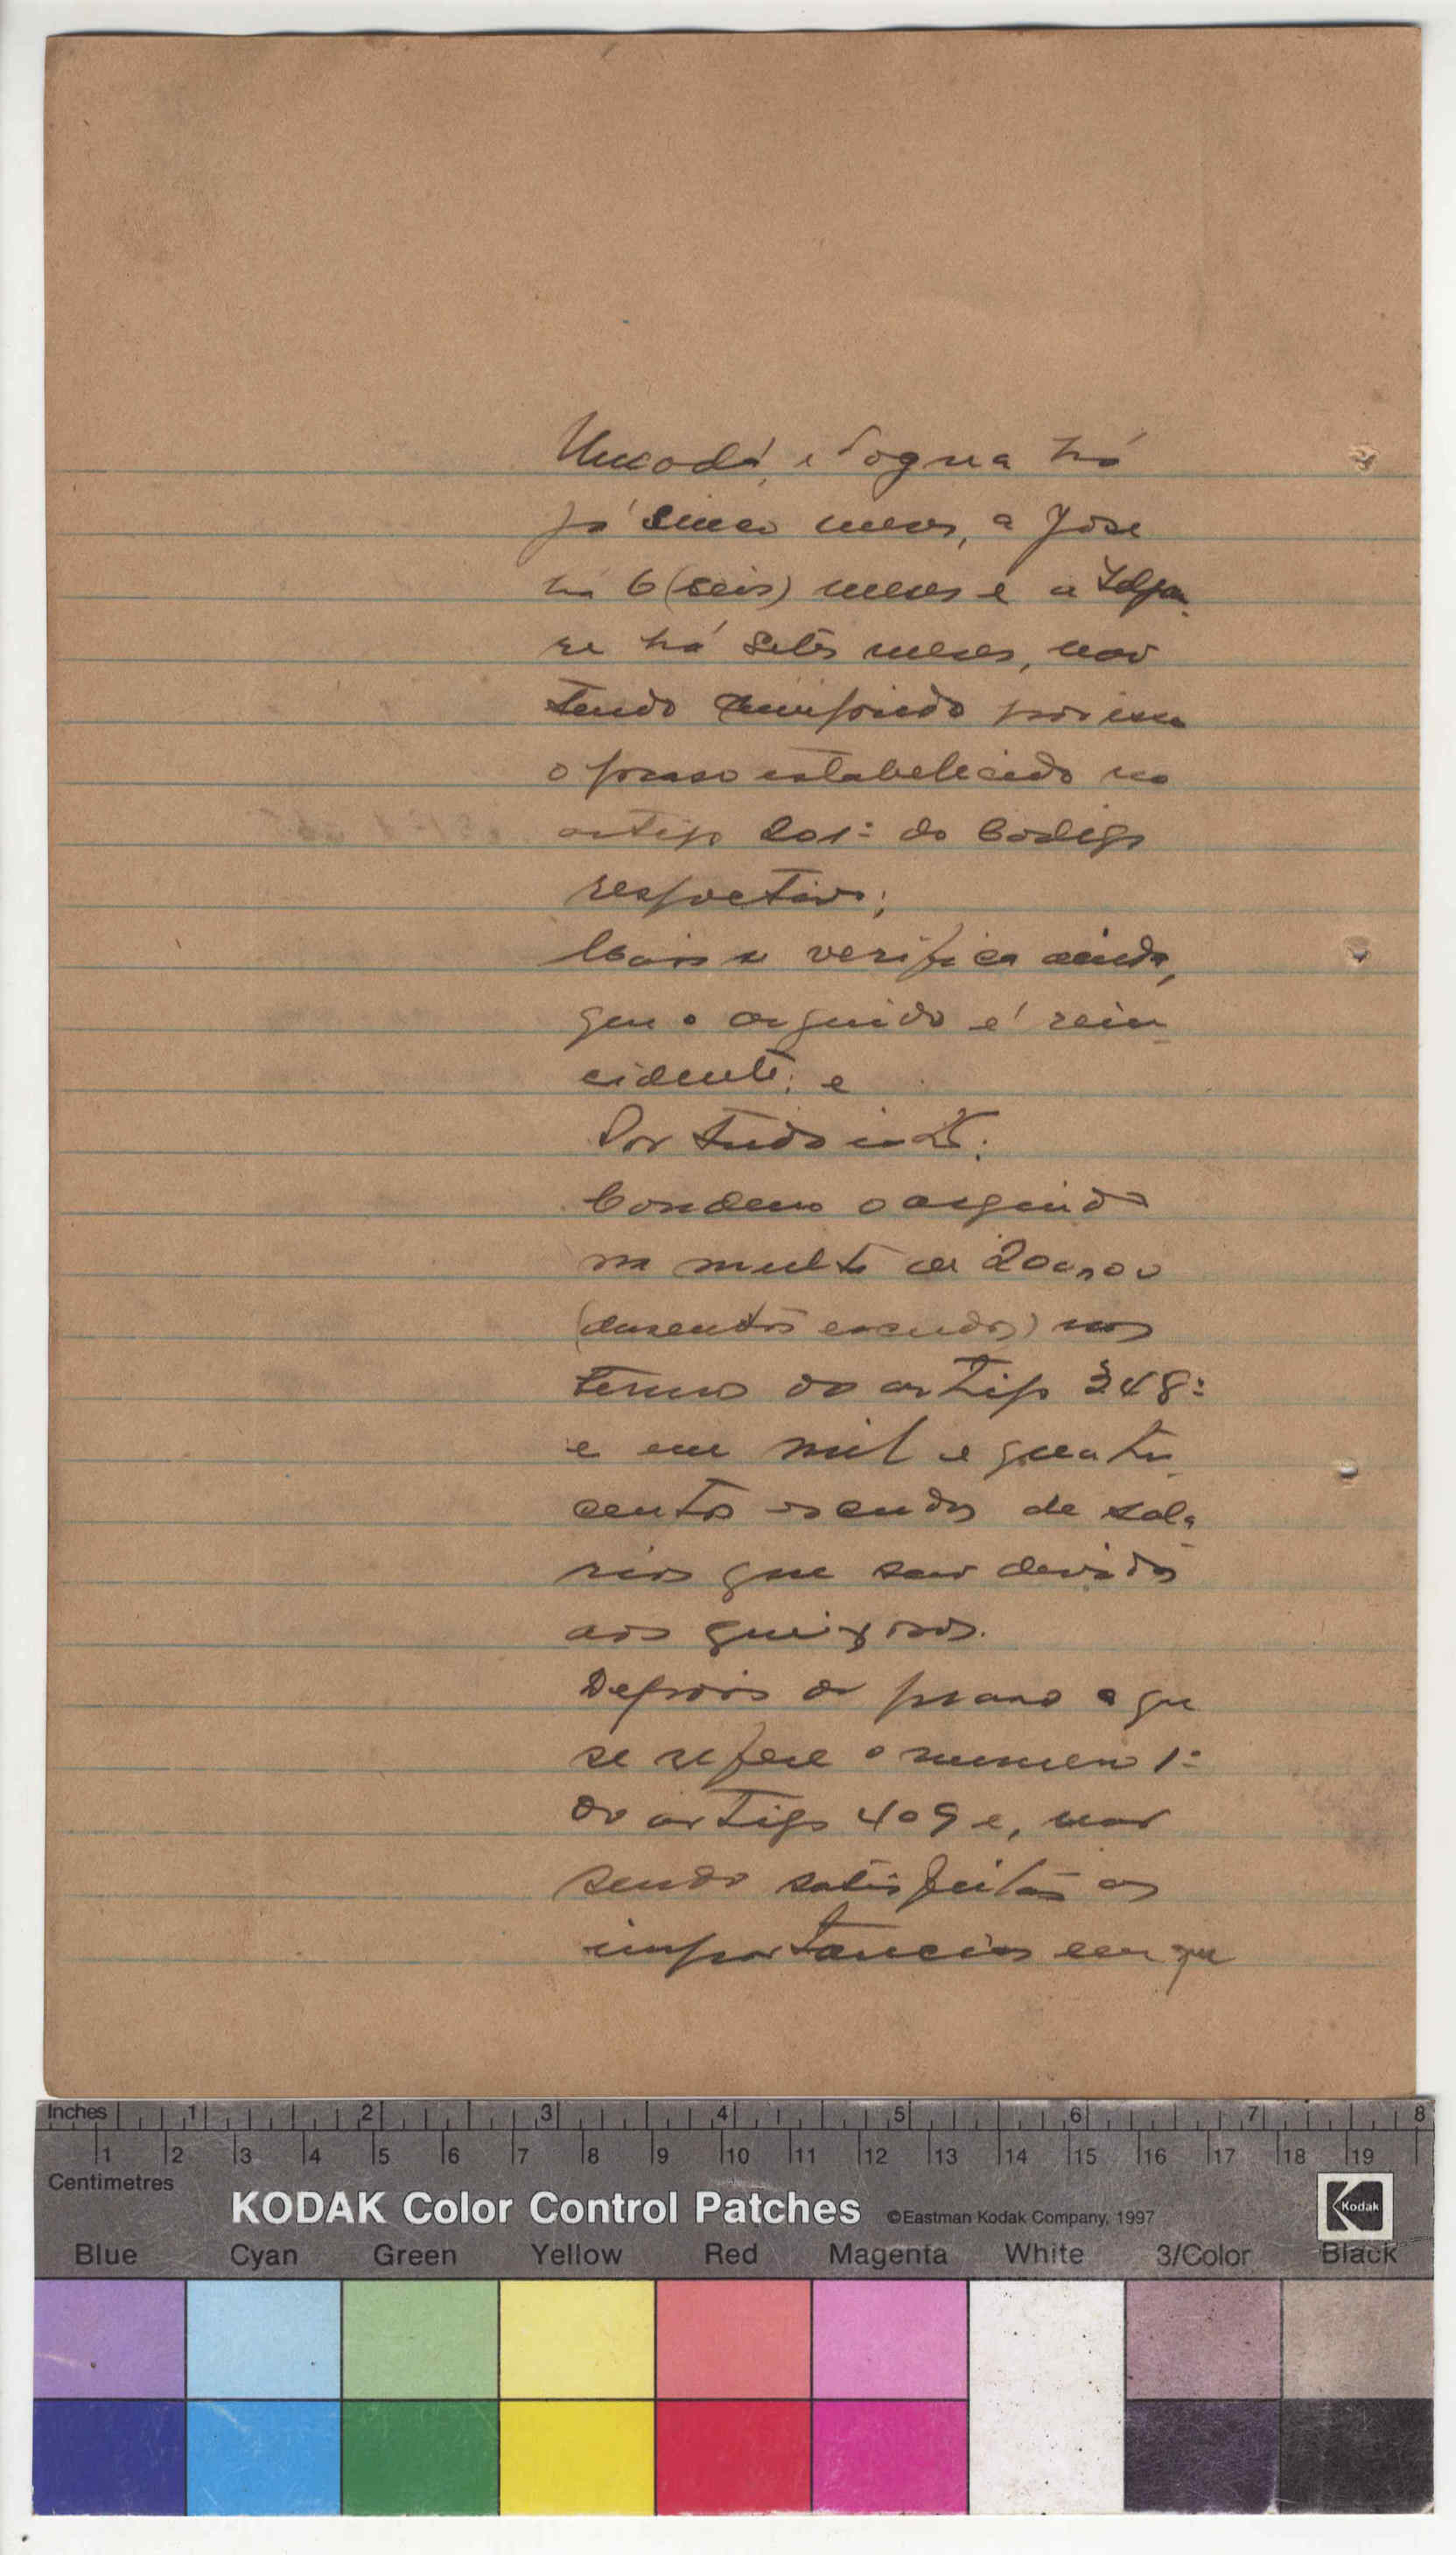 há
já cinco meses, a José
há 6 (seis) meses e a
re há sete meses, não
tendo cumprido por isso
o prazo estabelecido no
artigo 201º do Codigo
respectivo;
Mais se verifica ainda,
que o arguido é rein
cidente; e
Por tudo isto:
Condeno o arguido
na multa de 200,00
(duzentos escudos) nos
termos do artigo 348º
e em mil e quatro
centos escudos de sala
rios que são devidos
aos queixosos.
Depois do prazo a que
se refere o numero 1º
do artigo 409 e, não
sendo satisfeitas as
importancias em que
Inches 1 2 3 4 5 6 7 8
1 2 3 4 5 6 7 8 9 10 11 12 13 14 15 16 17 18 19
Centimetres
KODAK Color Control Patches ©Eastman Kodak Company, 1997 Kodak
Blue Cyan Green Yellow Red Magenta White 3/Color Black